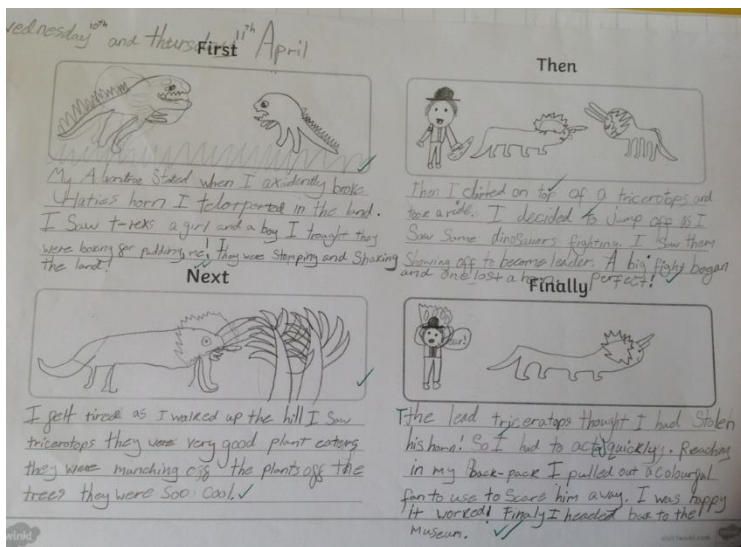 Wednesday 10th and Thursday 11th April
First
My Adventure Stated when I axidently broke
Hatties horn I telorported in the land.
I Saw t-rexs a girl and a boy I trought they
were looking for pudding, me! They were Stomping and Shaking
the land!
Then
Then I climed on top of a tricerotops and
took a ride. I decided to Jump off as I
Saw Some dinosauers fighting. I saw them
Showing off to become leader. A big fight began
and one lost a horn Perfect!
Next
I gelt tired as I walked up the hill I Saw
tricerotops they were very good plant eaters
they were manching off the plants off the
trees they were Soo Cool.
Finally
The lead triceratops thought I had Stolen
his horn! So I had to act quickly. Reaching
in my Back-pack I pulled out a colourful
fan to use to Scare him away. I was happy
it worked! Finaly I headed bac to the
Museum.
twinkl
visit twinkl.com